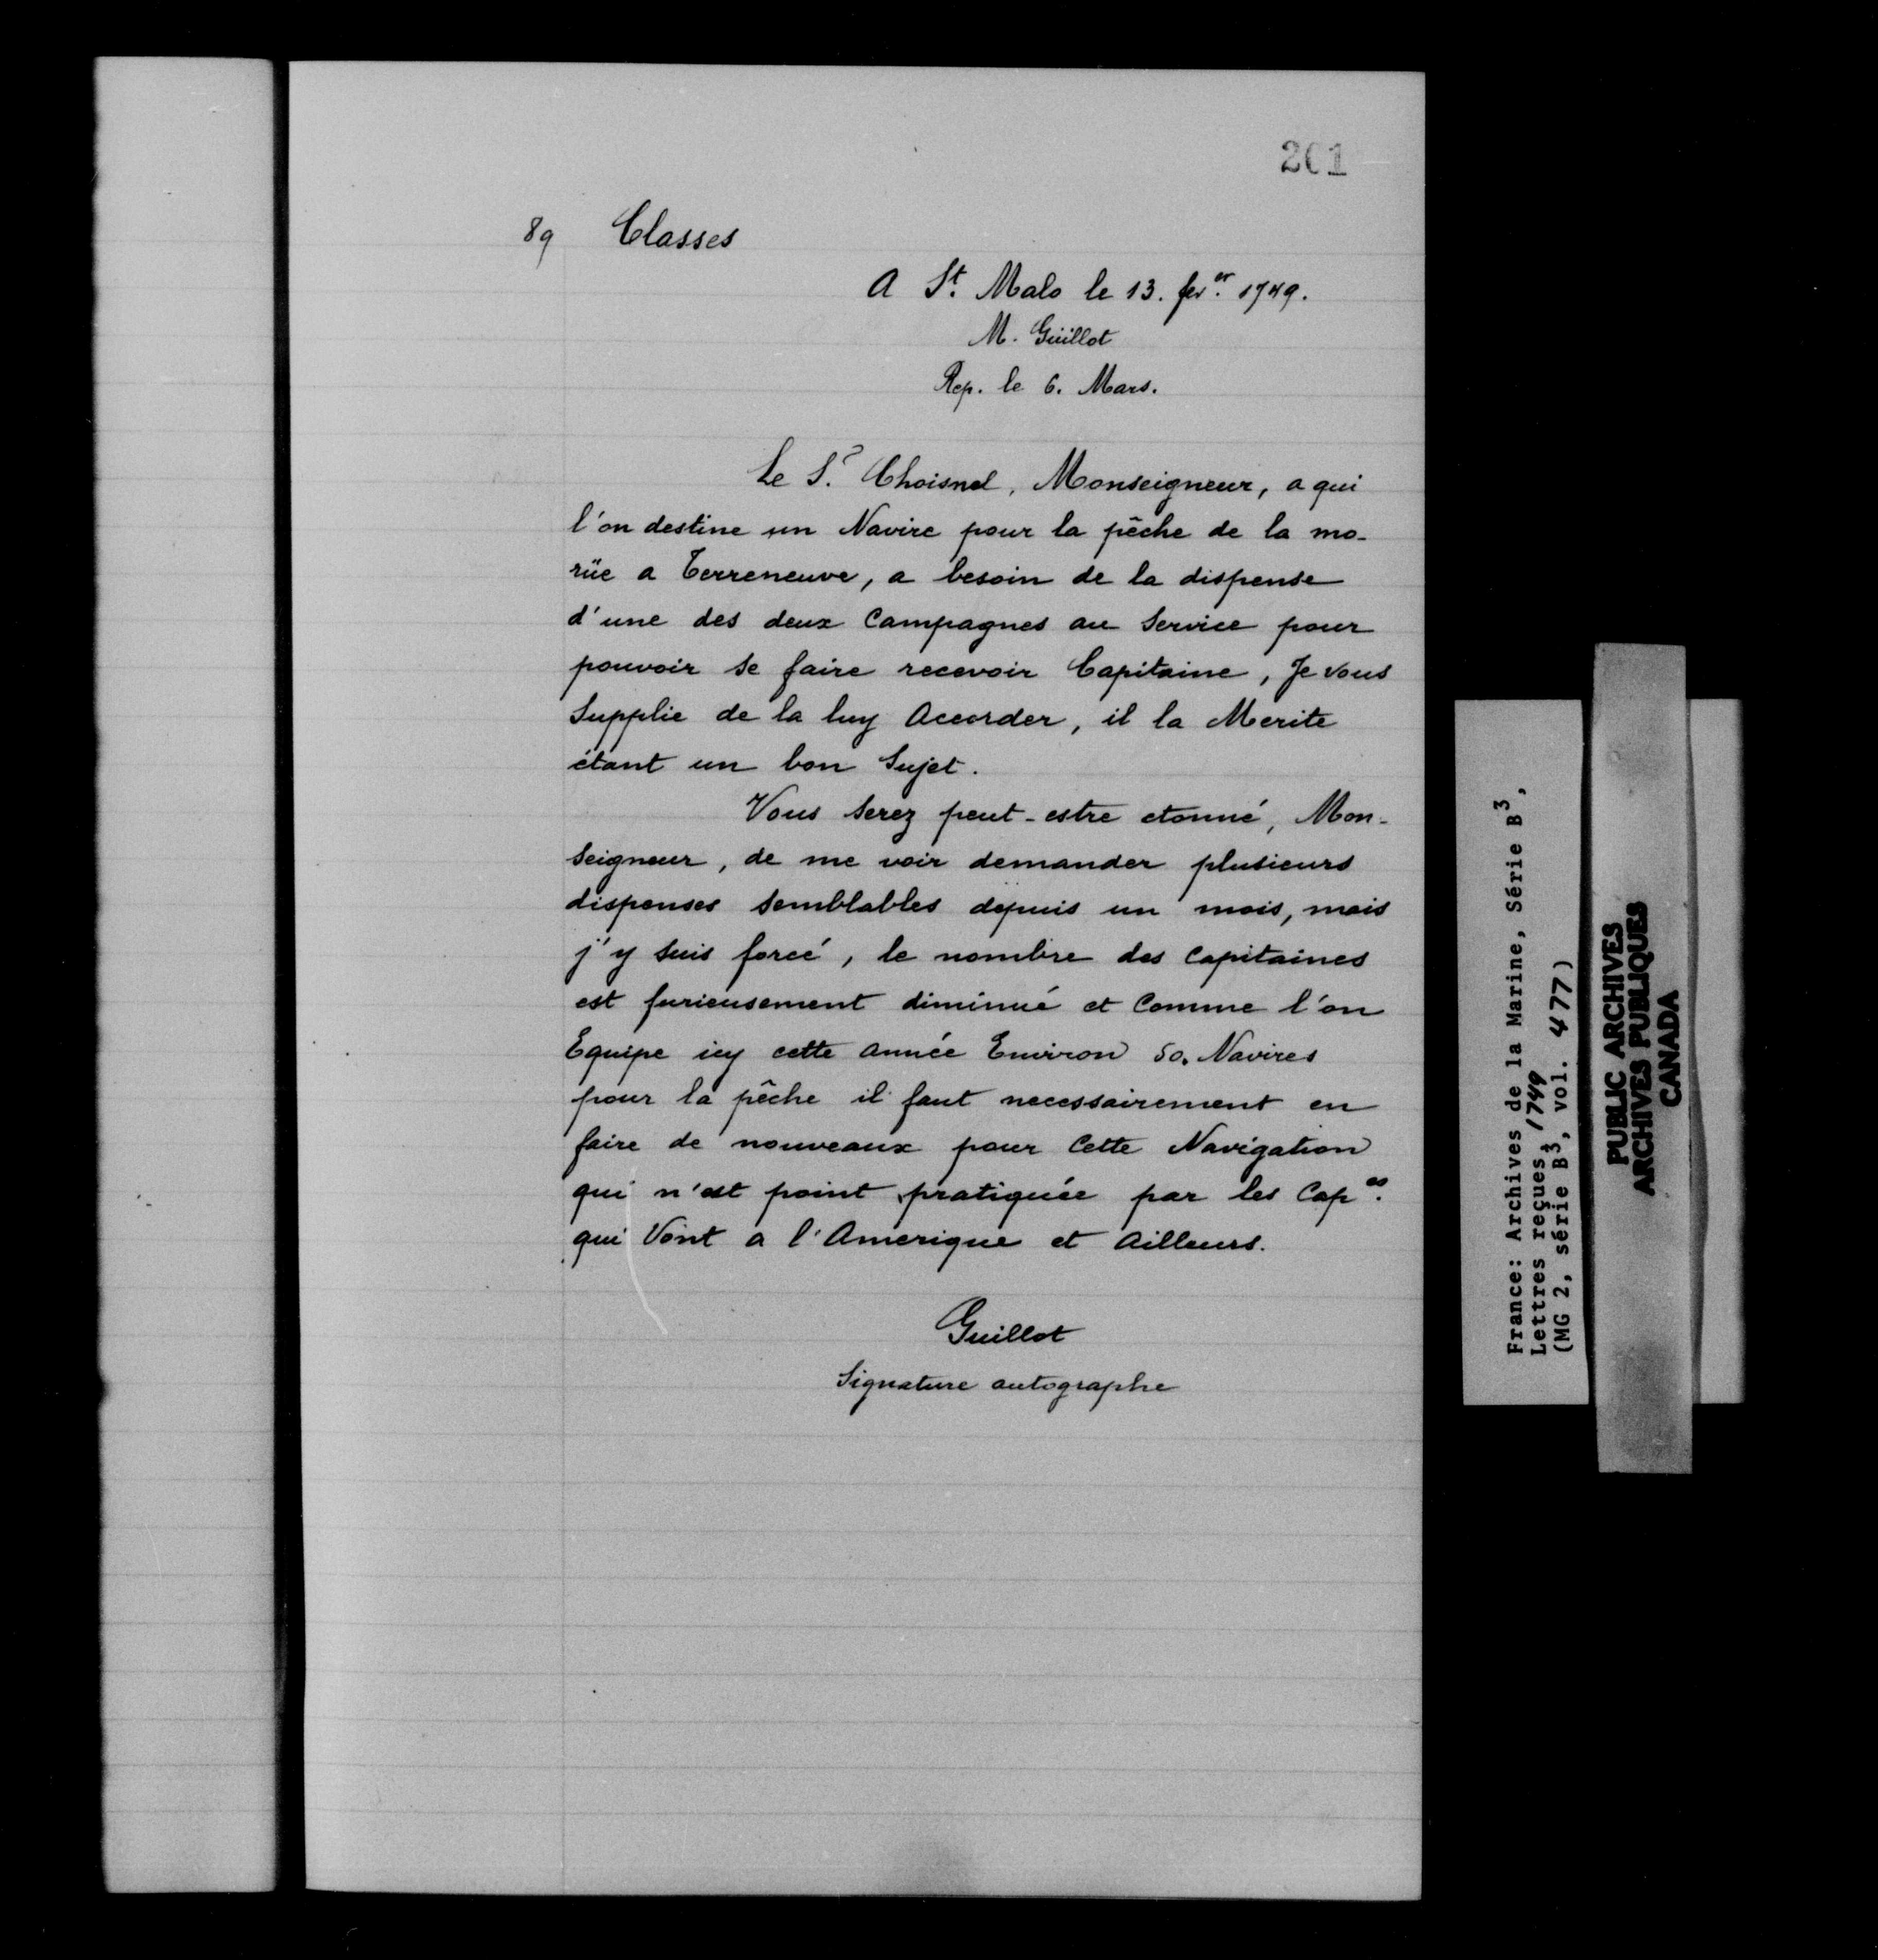 201
89 Classes
A St. Malo le 13. fev.er 1749.
M. Güillot
Rep. le 6. Mars.
Le S.r Choisnel, Monseigneur, a qui
l'on destine un Navire pour la pêche de la mo-
rüe a Terreneuve, a besoin de la dispense
d'une des deux Campagnes au Service pour
pouvoir se faire recevoir Capitaine, Je vous
Supplie de la luy Accorder, il la Merite
étant un bon Sujet.
Vous serez peut-estre etonné, Mon-
seigneur, de me voir demander plusieurs
dispenses semblables depuis un mois, mais
j'y suis forcé, le nombre des Capitaines
est furieusement diminué et Comme l'on
Equipe icy cette année Environ 50. Navires
pour la pêche il faut necessairement en
faire de nouveaux pour Cette Navigation
qui n'est point pratiquée par les Cap.es
qui Vont a l'Amerique et Ailleurs.
Guillot
Signature autographe
France: Archives de la Marine, Série B3,
Lettres reçues, 1749
(MG 2, série B3, vol. 477)
PUBLIC ARCHIVES
ARCHIVES PUBLIQUES
CANADA